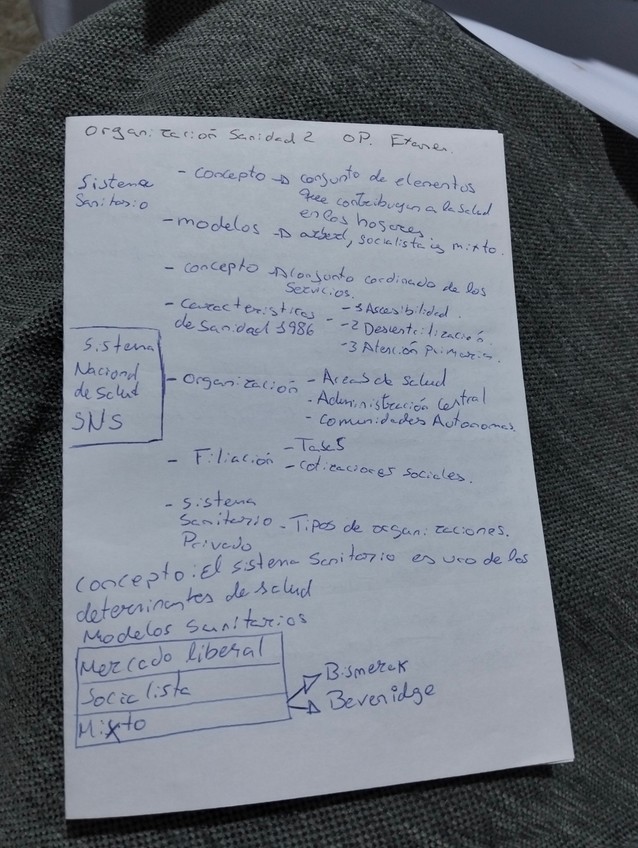 Organización Sanidad 2 OP. Examen.
Sistema
Sanitario
- concepto → conjunto de elementos
que contribuyen a la salud
en los hogares.
- modelos → , socialista y mixto.
- concepto → Conjunto cordinado de los
Servicios.
- características
de Sanidad 1986
- 1 Accesibilidad.
- 2 Descentrilización.
- 3 Atención Primaria.
Sistema
Nacional
de Salud
SNS
- Organización - Areas de salud
- Administración Central
- Comunidades Autonomas.
- Filiación - Tases
- cotizaciones sociales.
- Sistema
Sanitario - Tipos de organizaciones.
Privado
Concepto: El sistema Sanitario es uno de los
determinantes de salud
Modelos Sanitarios
Mercado liberal
Socialista
Mixto
→ Bismerck
→ Bevenidge